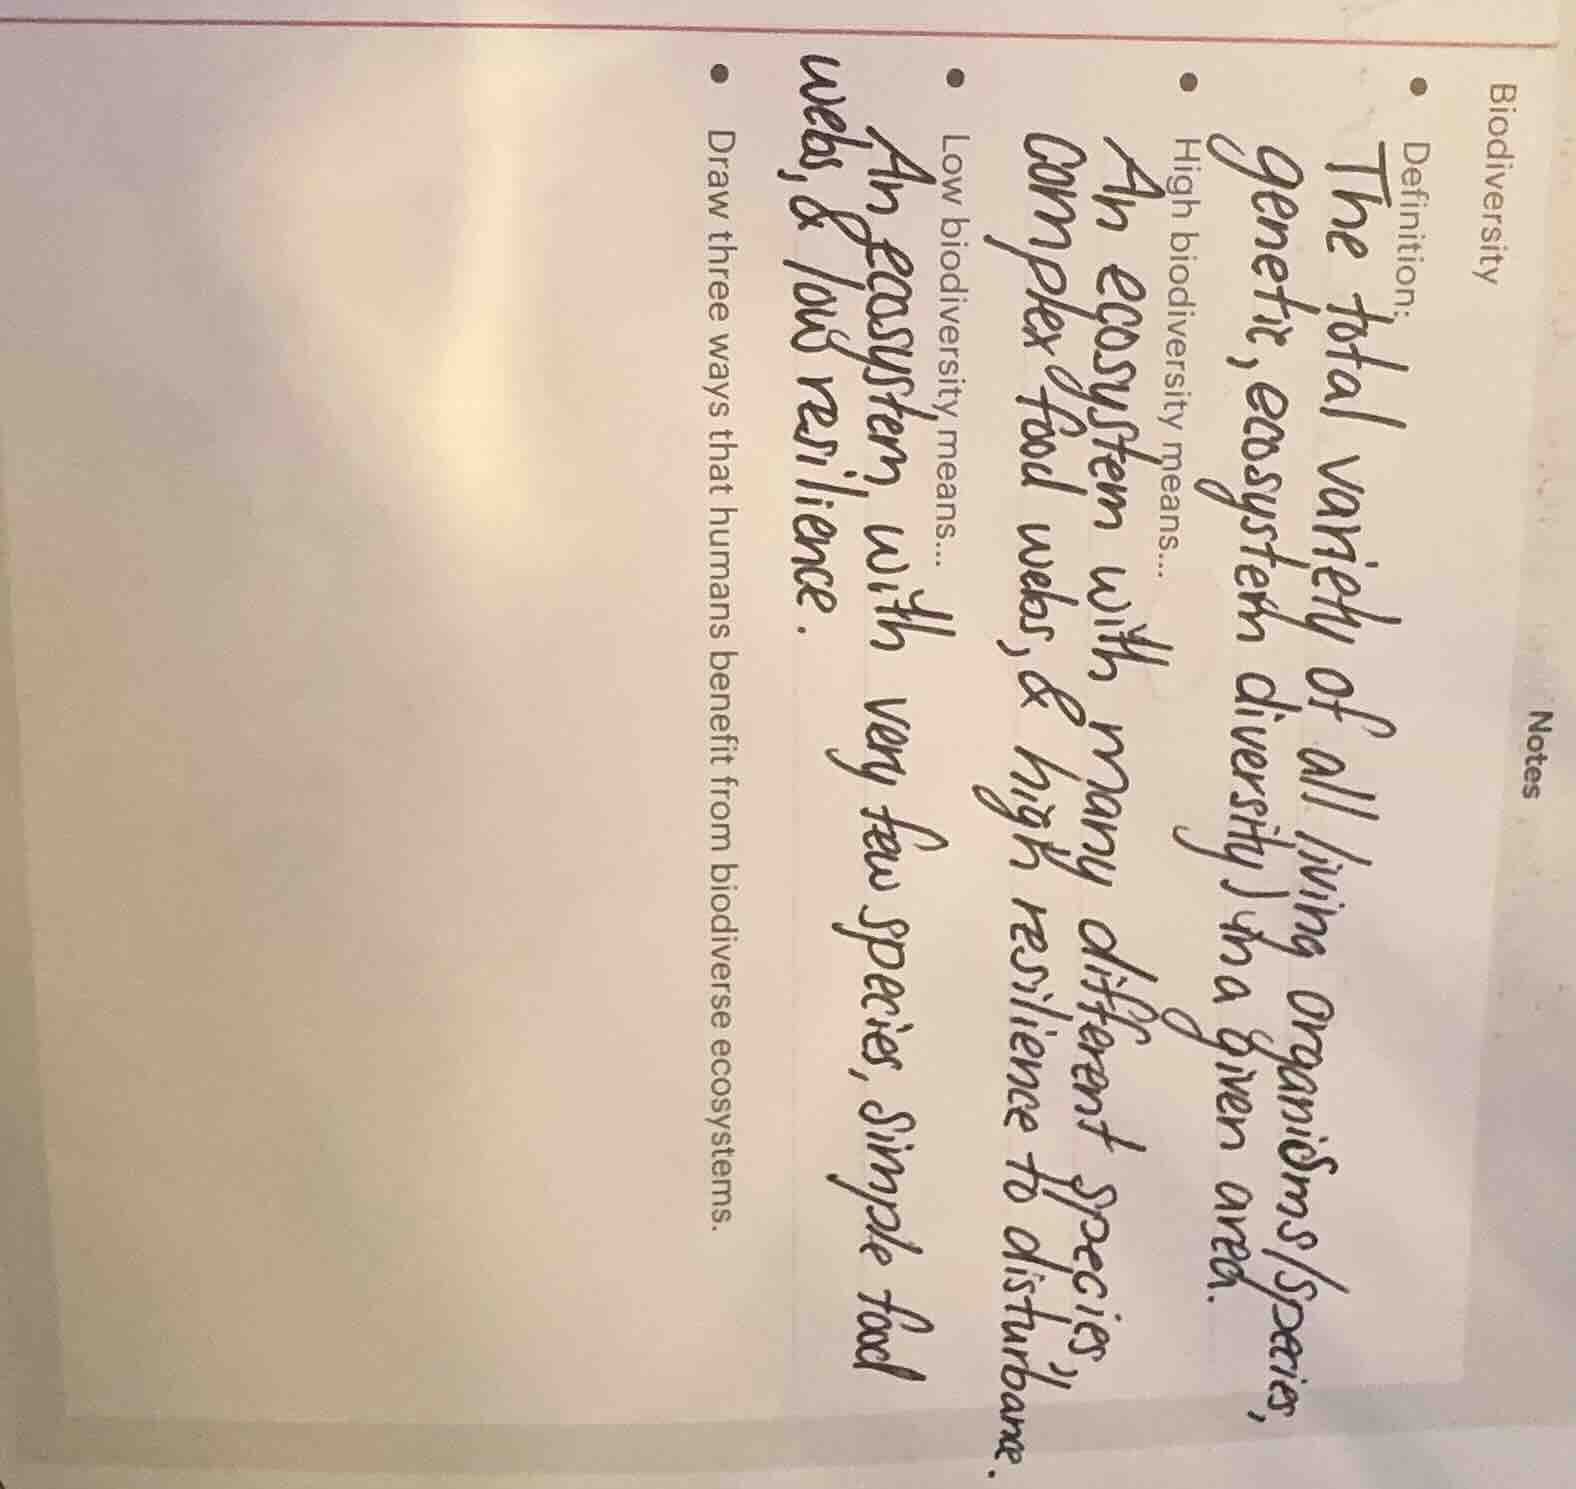 Notes
Biodiversity
• Definition:
The total variety of all living organisms/species,
genetic, ecosystem diversity) in a given area.
• High biodiversity means...
An ecosystem with many different species,
complex food webs, & high resilience to disturbance.
• Low biodiversity means...
An ecosystem with very few species, simple food
webs, & low resilience.
• Draw three ways that humans benefit from biodiverse ecosystems.